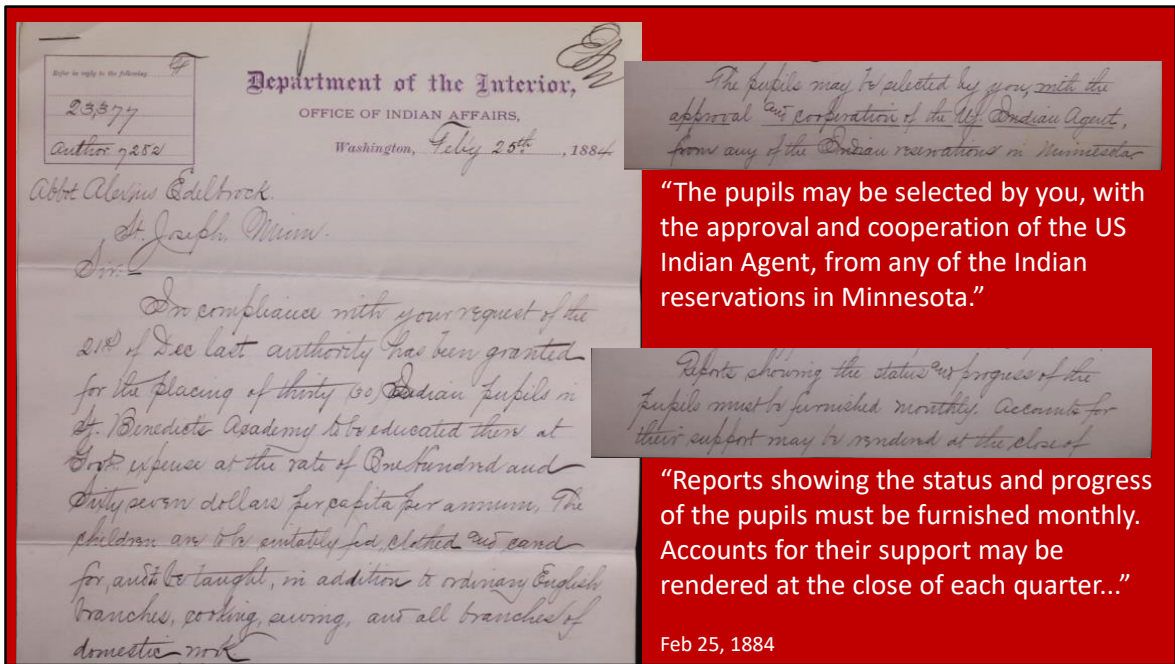 Refer in reply to the following:
23,377
Author 7282
Department of the Interior,
OFFICE OF INDIAN AFFAIRS,
Washington, Feby 25th, 1884
Abbot Alexius Edelbrock.
St. Joseph, Minn.
Sir:-
In compliance with your request of the
21st of Dec last authority has been granted
for the placing of thirty (30) Indian pupils in
St. Benedicts Academy to be educated there at
Govt. expense at the rate of One Hundred and
Sixty seven dollars per capita per annum. The
children are to be suitably fed, clothed and cared
for, and to be taught, in addition to ordinary English
branches, cooking, sewing, and all branches of
domestic work
The pupils may be selected by you, with the
approval and cooperation of the US Indian Agent,
from any of the Indian reservations in Minnesota
“The pupils may be selected by you, with
the approval and cooperation of the US
Indian Agent, from any of the Indian
reservations in Minnesota.”
Reports showing the status and progress of the
pupils must be furnished monthly. Accounts for
their support may be rendered at the close of
“Reports showing the status and progress
of the pupils must be furnished monthly.
Accounts for their support may be
rendered at the close of each quarter...”
Feb 25, 1884